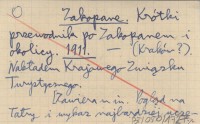 O Zakopane. Krótki
przewodnik po Zakopanem i
okolicy. 1911. — (Kraków?).
Nakładem Krajowego Związku
Turystycznego.
[Zawiera m.in. Pogląd na
Tatry i wykaz najbardziej